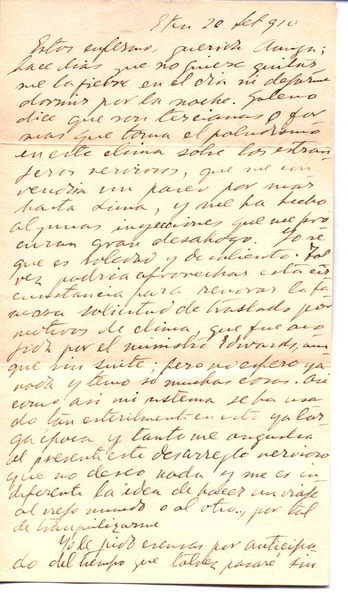 Eten 20 Set 910
Estoy enfermo, querido Amigo;
hace días que no quiere quitar
me la fiebre en el día ni dejarme
dormir por la noche. Galeno
dice que son tercianas o for
mas que toma el paludismo
en este clima sobre los extran
jeros nerviosos, que me con
vendría un paseo por mar
hasta Lima, y me ha hecho
algunas inyecciones que me pro
curan gran desahogo. Yo sé
que es soledad y desaliento. Tal
vez podría aprovechar esta cir
cunstancia para renovar la fa
mosa solicitud de traslado por
motivos de clima, que fue aco
jida por el ministro Edwards, aun
que sin suite; pero no espero ya
nada y temo si muchas cosas. Así
como así mi sistema se ha usa
do tan estérilmente en esta ya lar
ga época y tanto me angustia
al presente este desarreglo nervioso
que no deseo nada y me es in
diferente la idea de hacer un viaje
al viejo mundo o al otro, por tal
de tranquilizarme
Yo le pido excusas por anticipa
do del tiempo que talvez pasaré sin